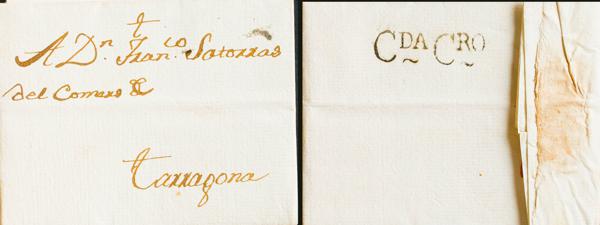 †
A Dn. Franco. Satorras
del Comerso &
Tarragona
CDA CRO